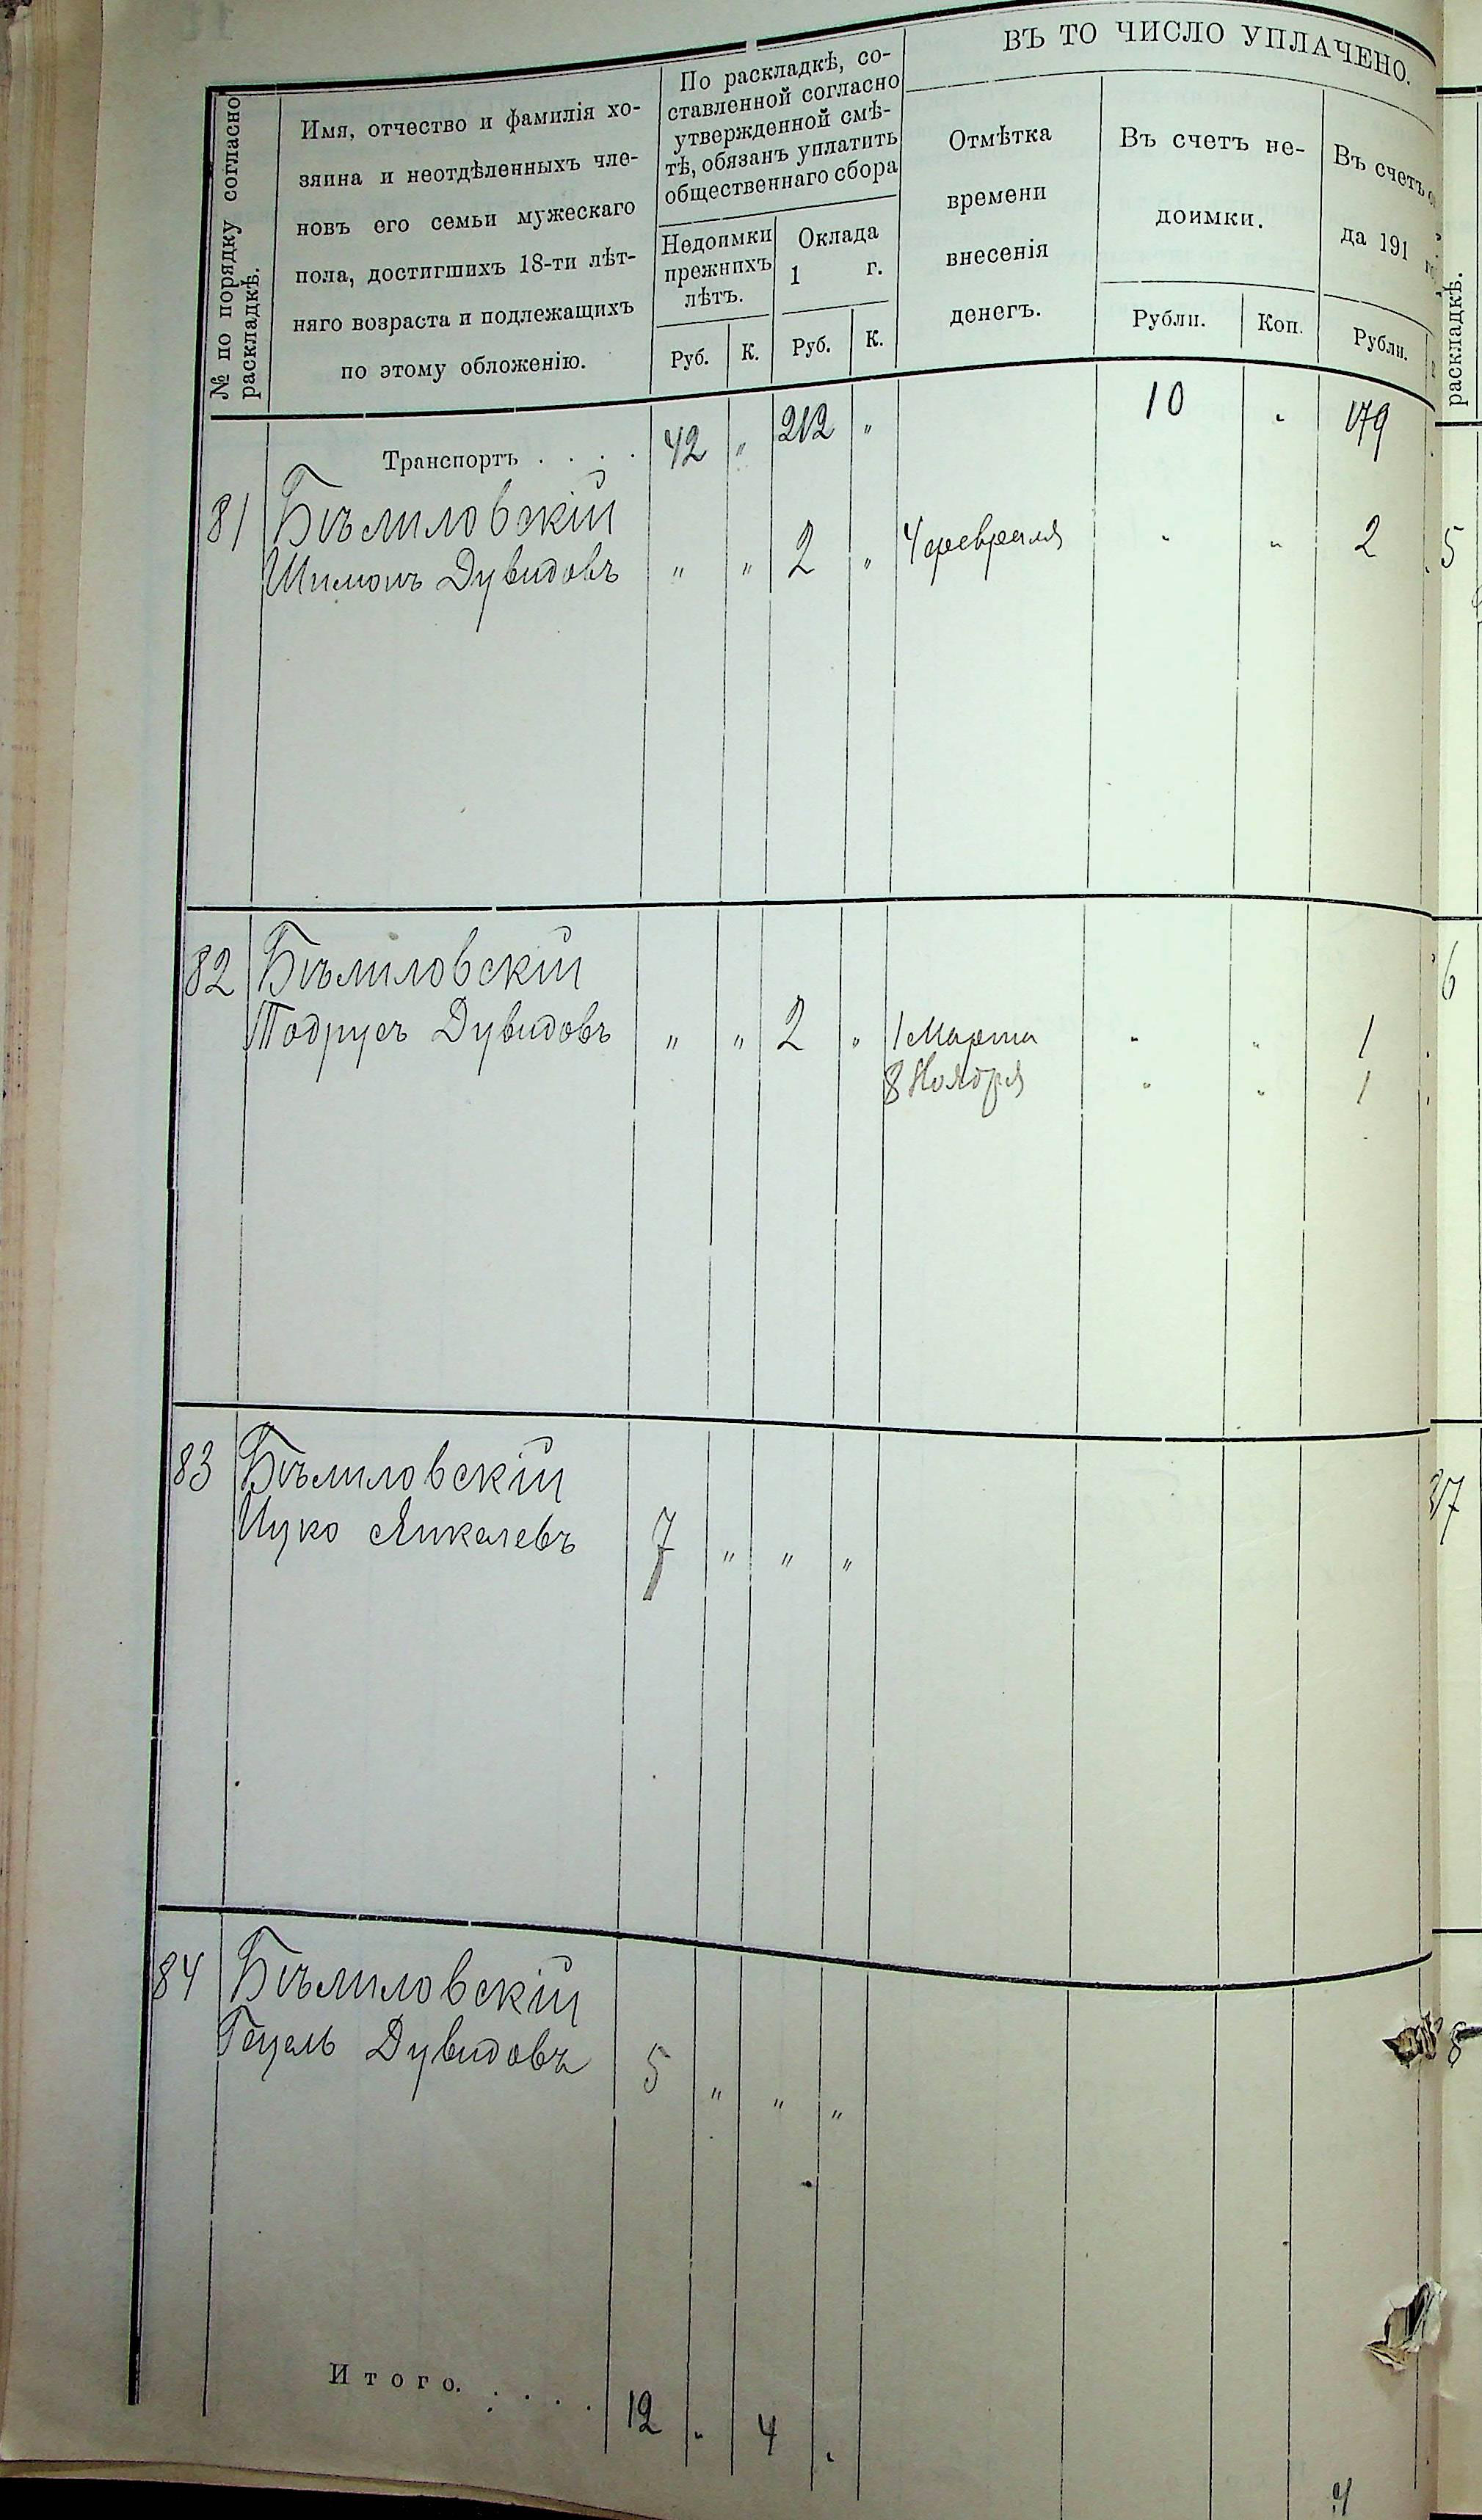 № по порядку согласно
раскладкѣ.
Имя, отчество и фамилія хо-
зяина и неотдѣленныхъ чле-
новъ его семьи мужескаго
пола, достигшихъ 18-ти лѣт-
няго возраста и подлежащихъ
по этому обложенію.
По раскладкѣ, со-
ставленной согласно
утвержденной смѣ-
тѣ, обязанъ уплатить
общественнаго сбора
Недоимки
прежнихъ
лѣтъ.
Оклада
1 г.
Руб. К. Руб. К.
ВЪ ТО ЧИСЛО УПЛАЧЕНО.
Отмѣтка
времени
внесенія
денегъ.
Въ счетъ не-
доимки.
Рубли. Коп.
Въ счетъ
да 191
Рубли.
раскладкѣ.
Транспортъ . . . . 42 „ 212 „ 10 „ 179
81 Бѣлиловскій
Шимонъ Дувидовъ „ „ 2 „ 4 февраля „ „ 2
5
82 Бѣлиловскій
Тодрусъ Дувидовъ „ „ 2 „ 1 Марта „ „ 1
8 Ноября „ „ 1
6
83 Бѣлиловскій
Ицко Янкелевъ 7 „ „ „
84 Бѣлиловскій
Гецель Дувидовъ 5 „ „ „
8
Итого. . . . . 12 „ 4 „
4